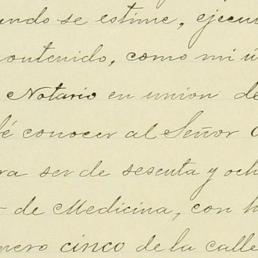 undo se estime, ejecu
contenido, como mi ú
Notario en union de
fé conocer al Señor
ra ser de sesenta y och
de Medicina, con h
mero cinco de la calle